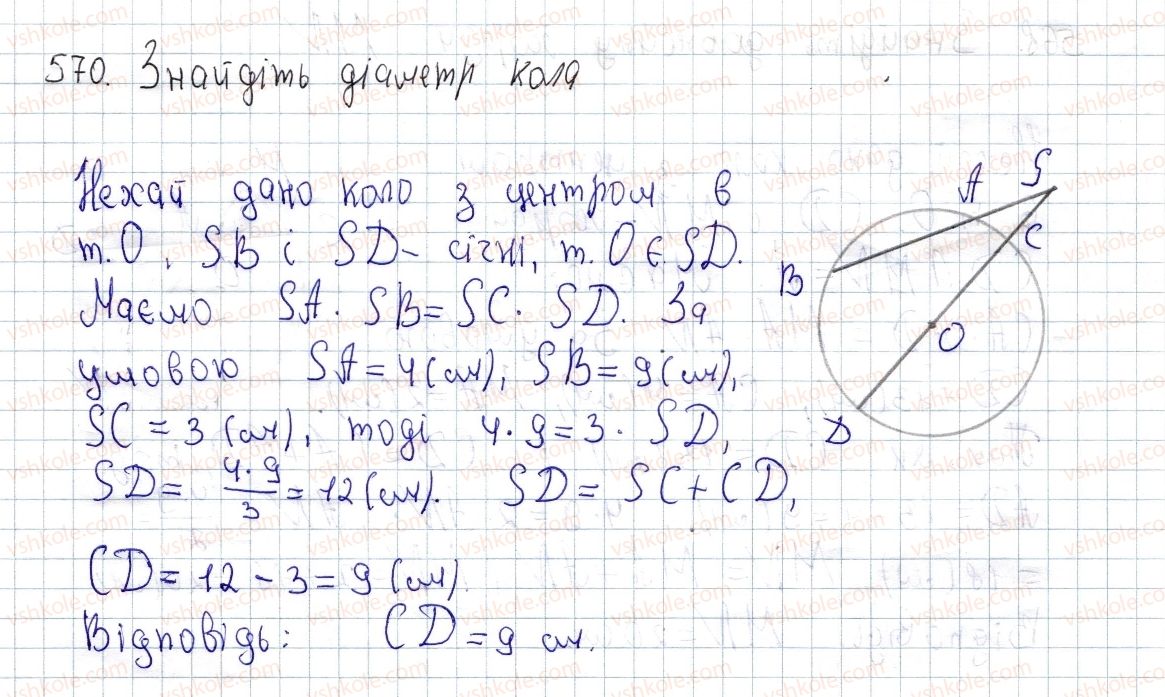 570. Знайдіть діаметр кола
Нехай дано коло з центром в
т. О, SB і SD - січні, т. О є SD.
Маємо SA · SB = SC · SD. За
умовою SA = 4 (см), SB = 9 (см),
SC = 3 (см), тоді 4 · 9 = 3 · SD,
SD = 4·9/3 = 12 (см). SD = SC + CD,
CD = 12 - 3 = 9 (см).
Відповідь: CD = 9 см.
A S
C
B
O
D
vshkole.com